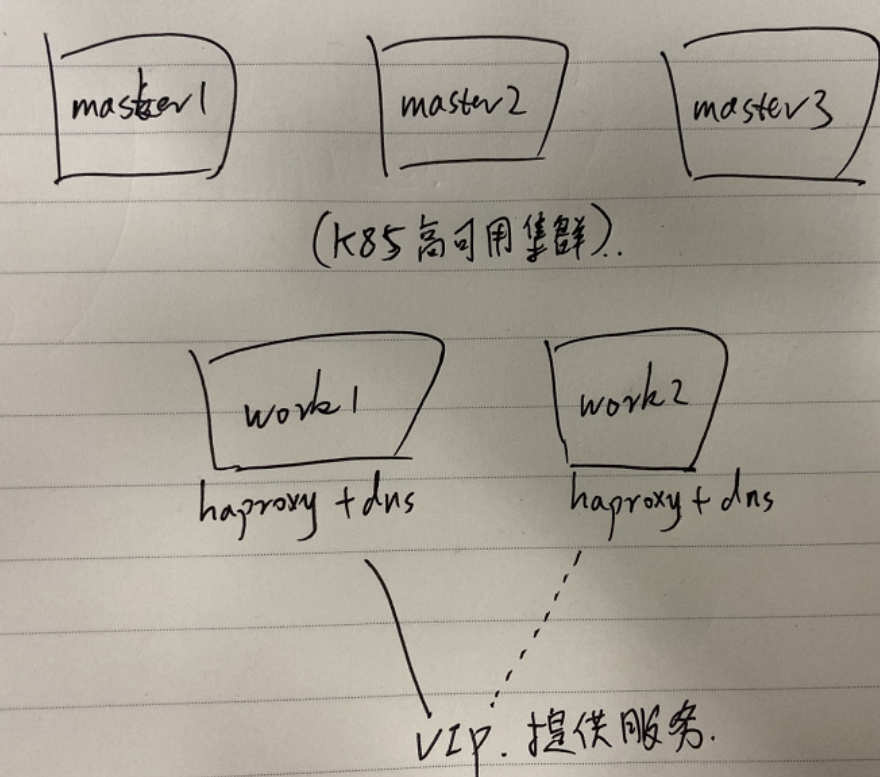 master1 master2 master3
(K8S高可用集群)..
work1 work2
haproxy + dns haproxy + dns
VIP. 提供服务.